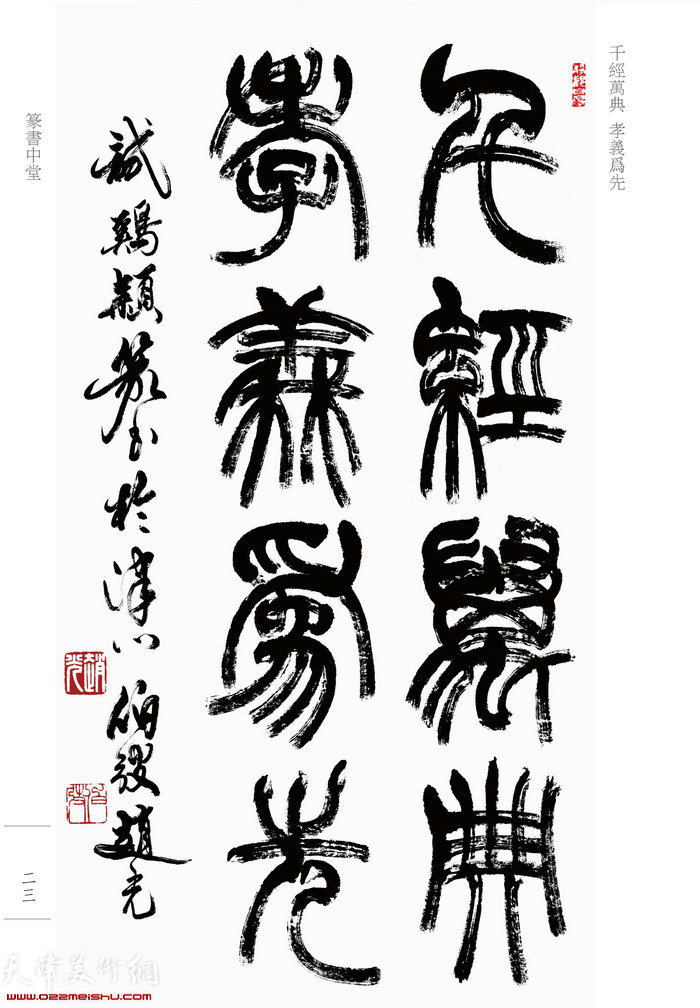 千經萬典 孝義爲先
千經萬典
孝義爲先
試鷄穎篆書於津門伯歿趙光
篆書中堂
二三
天津美術網
www.022meishu.com